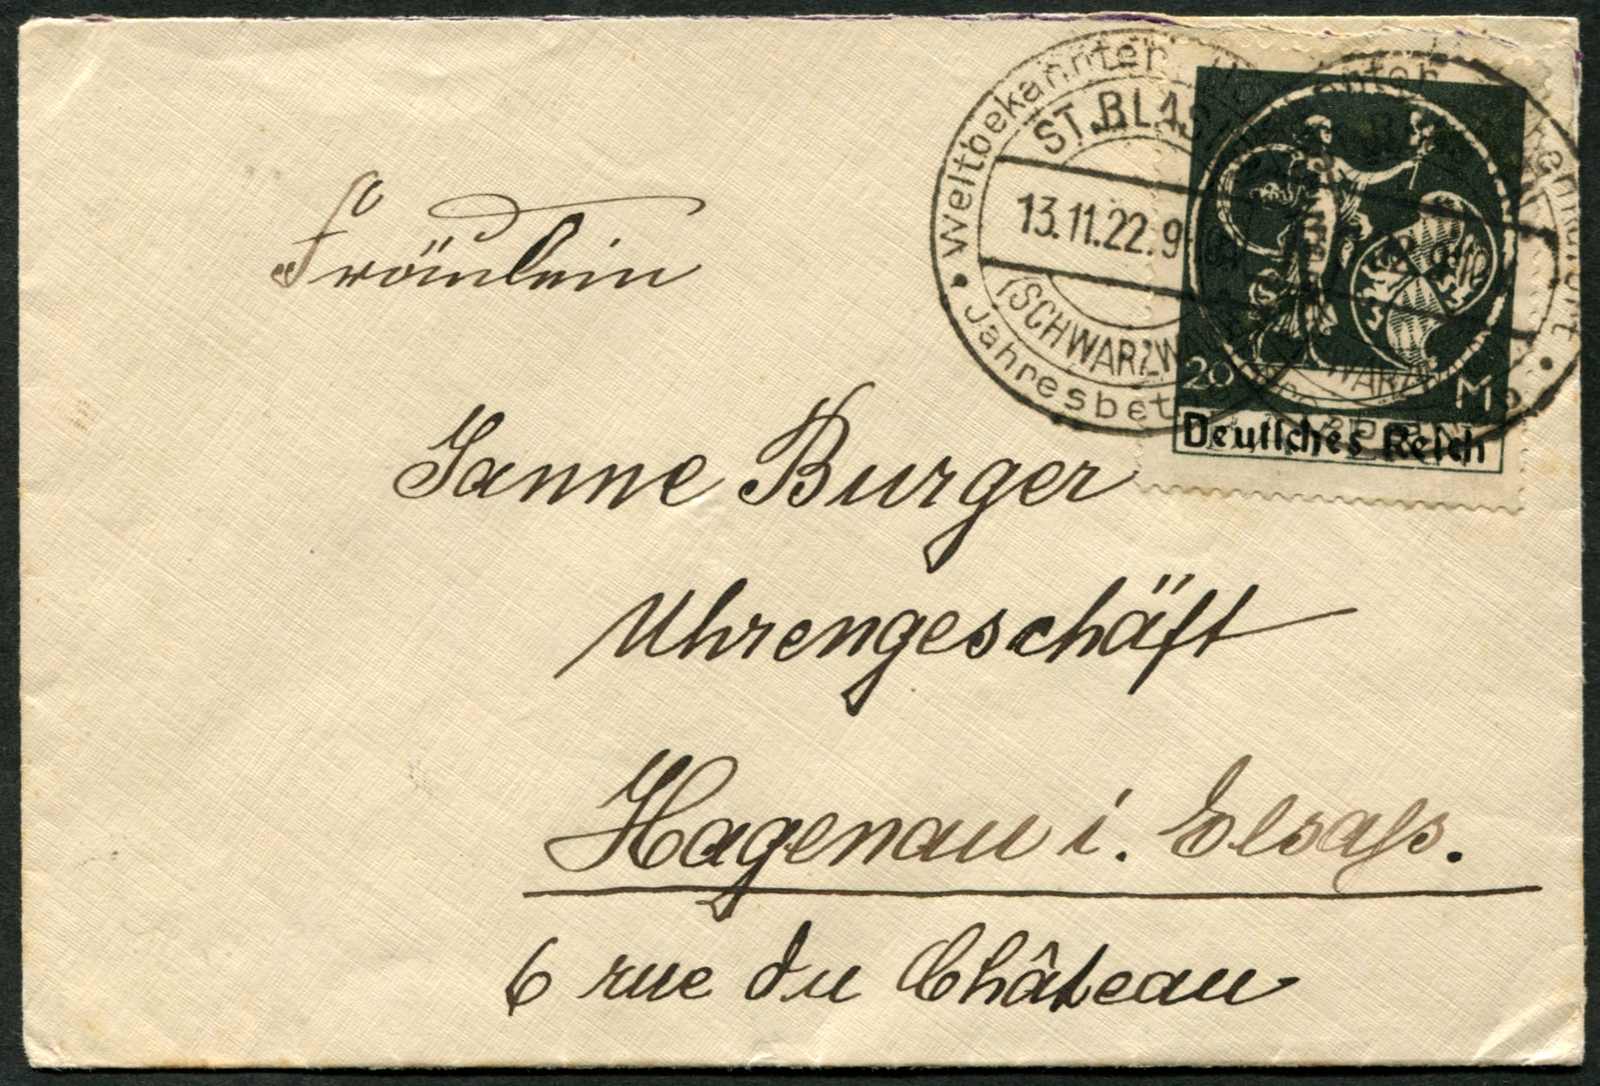 Weltbekannter
ST. BLAS
13.11.22.9
(SCHWARZW
Jahresbet
20 M
Deutsches Reich
Fräulein
Sanne Burger
Uhrengeschäft
Hagenau i. Elsass.
6 rue du Château